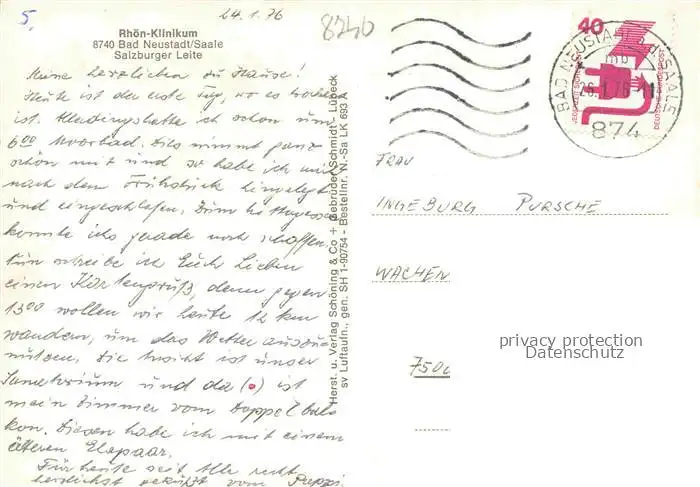 5.
24.1.76
8740
Rhön-Klinikum
8740 Bad Neustadt/Saale
Salzburger Leite
Meine herzlichen zu Hause!
Heute ist der erste Tag, wo es trocken
ist. Allerdings hatte ich schon um
6 00 Moorbad. Das nimmt ganz
schön mit und so habe ich mich
nach dem Frühstück eingelegt
und eingeschlafen. Zum Mittagessen
konnte ich's gerade noch schaffen.
Nun schreibe ich Euch Lieben
einen Kartengruß, denn gegen
13 00 wollen wir heute 12 km
wandern, um das Wetter auszu-
nutzen. Die Ansicht ist unser
Sanatorium und da (•) ist
mein Zimmer vom Doppelbal-
kon. Diesen habe ich mit einem
älteren Ehepaar.
Für heute seit Alle recht
herzlichst gegrüßt vom Pappi.
Herst. u. Verlag Schöning & Co + Gebrüder Schmidt, Lübeck
sv Luftaufn., gen. SH 1-90754 - Bestellnr. N.-Sa LK 693 A
40
JEDERZEIT SICHERHEIT
DEUTSCHE BUNDESPOST
BAD NEUSTADT a.d. SAALE
mb
25.1.76-11
874
FRAU
INGEBURG PURSCHE
WACHEN
7500
privacy protection
Datenschutz